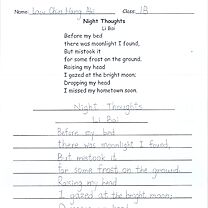 Name: Class: 1B
Night Thoughts
Li Bai
Before my bed
there was moonlight I found,
But mistook it
for some frost on the ground.
Raising my head
I gazed at the bright moon;
Dropping my head
I missed my hometown soon.
Night Thoughts
Li Bai
Before my bed
there was moonlight I found,
But mistook it
for some frost on the ground.
Raising my head
I gazed at the bright moon;